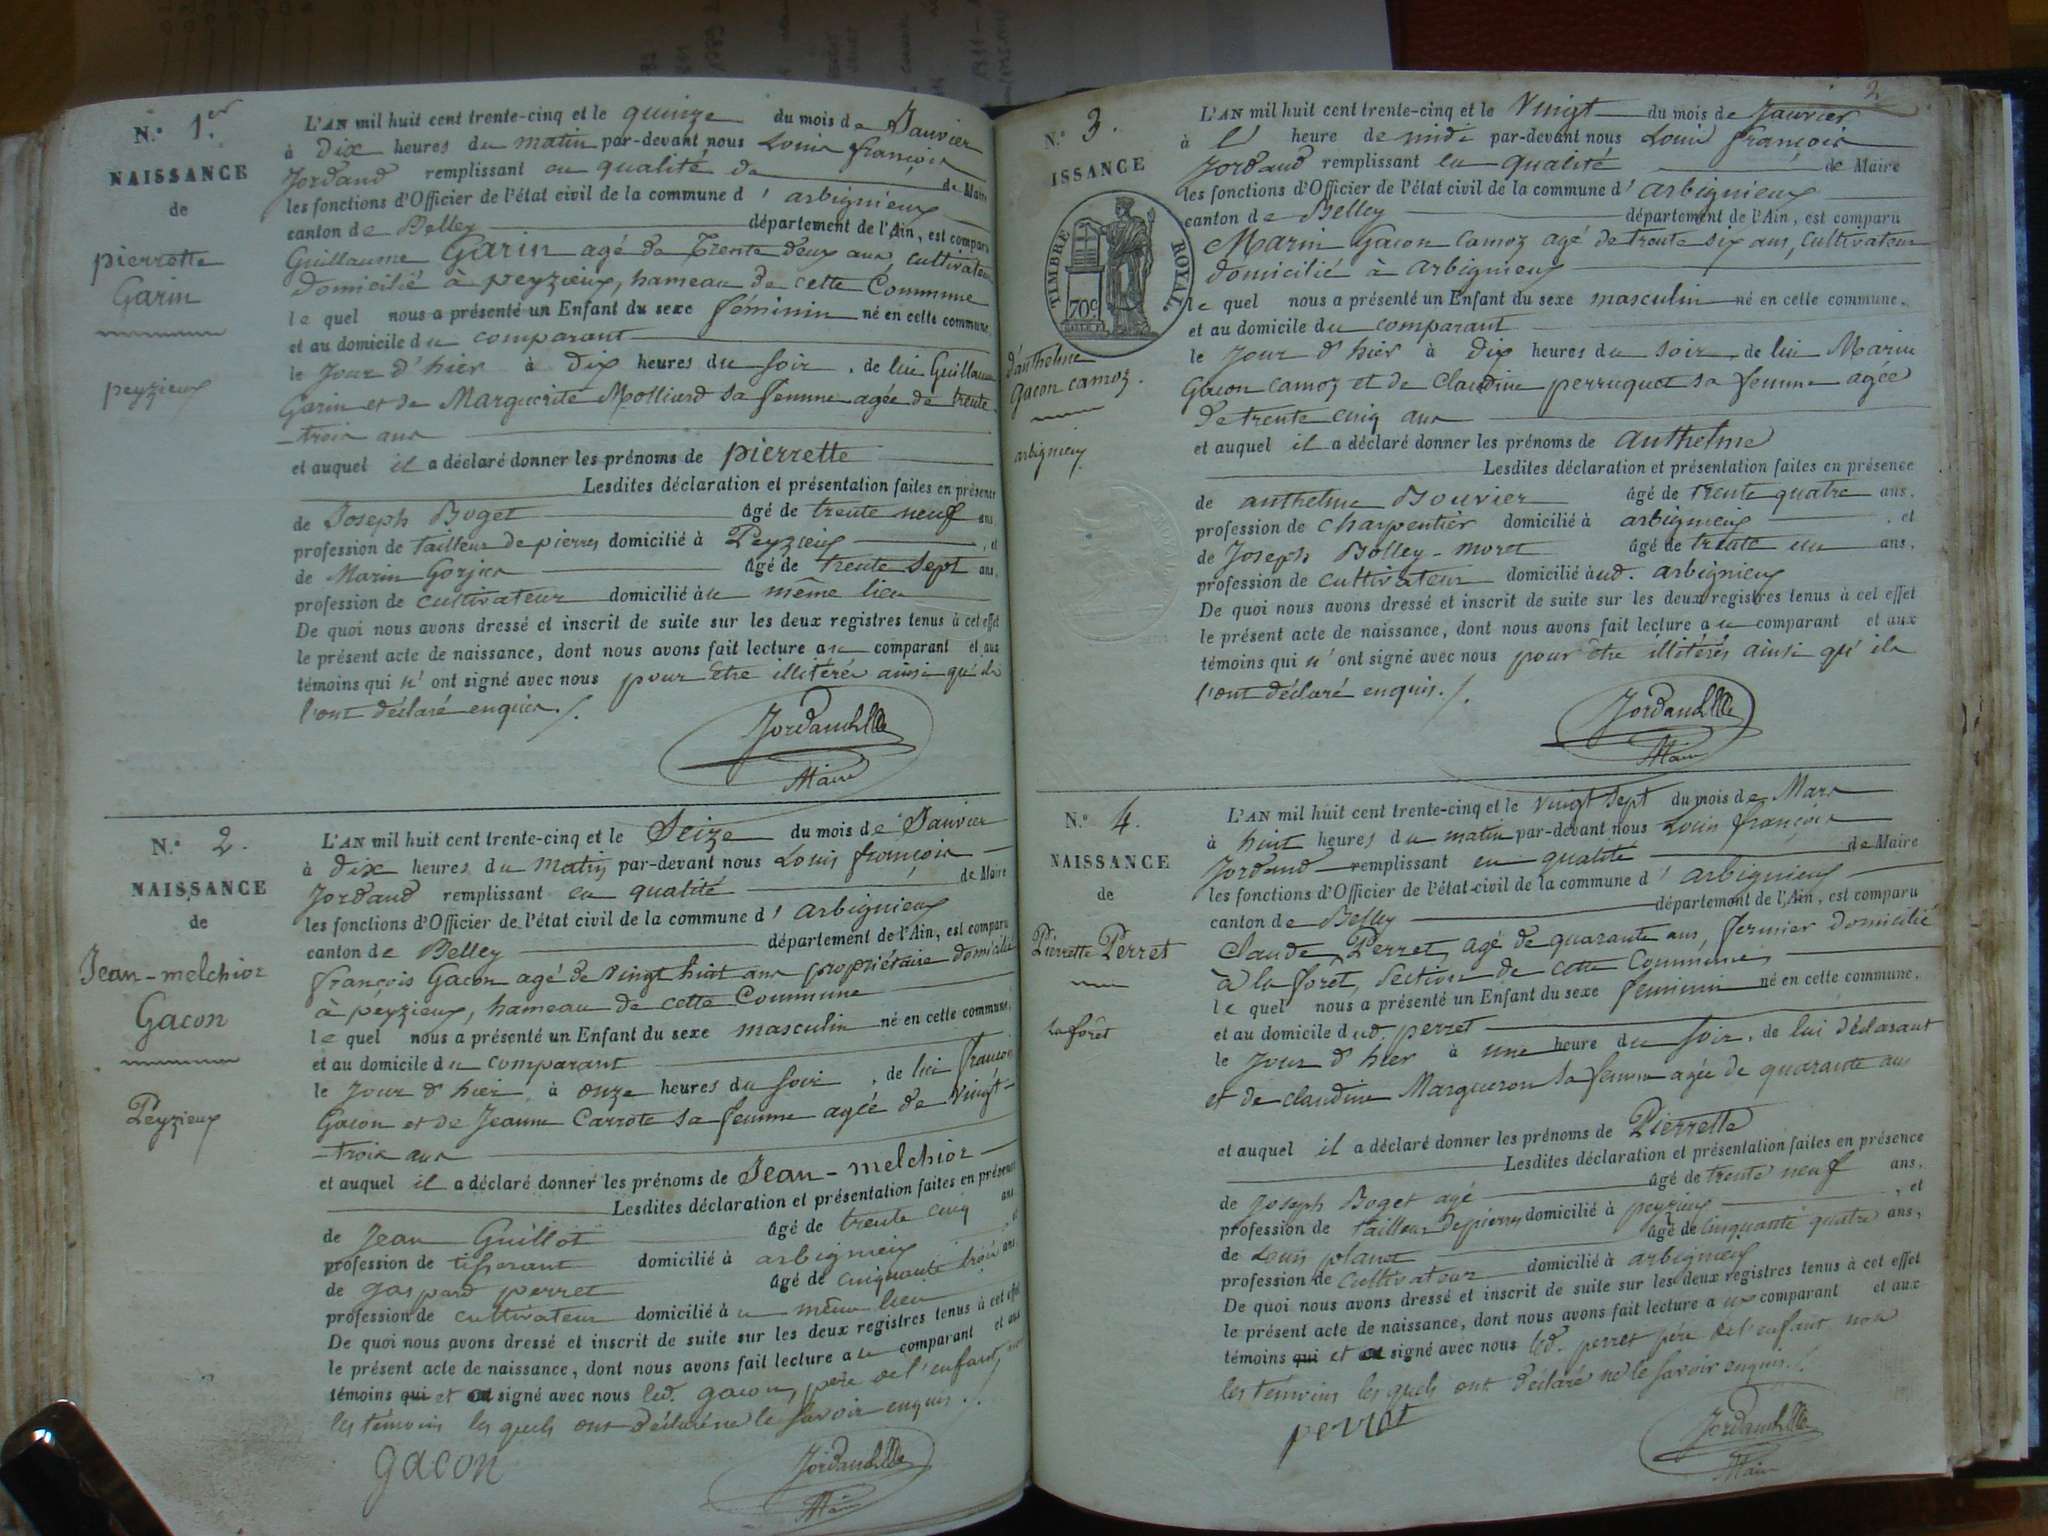 N.° 1.er
NAISSANCE
de
pierrette
Garin
peyzieux
L'AN mil huit cent trente-cinq et le quinze du mois de Janvier
à Dix heures du matin par-devant nous Louis françois
Jordand remplissant en qualité de de Maire
les fonctions d'Officier de l'état civil de la commune d'arbignieux
canton de Belley département de l'Ain, est comparu
Guillaume Garin agé de Trente deux ans, cultivateur
Domicilié à peyzieux, hameau de cette Commune
le quel nous a présenté un Enfant du sexe féminin né en cette commune.
et au domicile du comparant
le Jour d'hier à dix heures du soir, de lui Guillaume
Garin et de Marguerite Molliard sa femme agée de trente
-trois ans
et auquel il a déclaré donner les prénoms de pierrette
Lesdites déclaration et présentation faites en présence
de Joseph Boget âgé de trente neuf ans,
profession de tailleur de pierres domicilié à Peyzieux, et
de Marin Gorjus âgé de trente sept ans,
profession de cultivateur domicilié au même lieu
De quoi nous avons dressé et inscrit de suite sur les deux registres tenus à cet effet
le présent acte de naissance, dont nous avons fait lecture au comparant et aux
témoins qui n'ont signé avec nous pour être illitérés ainsi qu'ils
l'ont déclaré enquis./.
Jordand
Maire
N.° 2.
NAISSANCE
de
Jean-melchior
Gacon
Peyzieux
L'AN mil huit cent trente-cinq et le Seize du mois de Janvier
à dix heures du matin par-devant nous Louis françois
Jordand remplissant en qualité de Maire
les fonctions d'Officier de l'état civil de la commune d'arbignieux
canton de Belley département de l'Ain, est comparu
françois Gacon agé de vingt huit ans propriétaire domicilié
à peyzieux, hameau de cette Commune
le quel nous a présenté un Enfant du sexe masculin né en cette commune,
et au domicile du comparant
le Jour d'hier à onze heures du soir, de lui françois
Gacon et de Jeanne Carrote sa femme agée de vingt-
-trois ans
et auquel il a déclaré donner les prénoms de Jean-melchior
Lesdites déclaration et présentation faites en présence
de Jean Guillot âgé de trente cinq ans
profession de tisserant domicilié à arbignieux et
de gaspard perret âgé de cinquante trois ans
profession de cultivateur domicilié au même lieu
De quoi nous avons dressé et inscrit de suite sur les deux registres tenus à cet effet
le présent acte de naissance, dont nous avons fait lecture au comparant et aux
témoins qui et ont signé avec nous led. gacon, père de l'enfant, non
les témoins les quels ont déclaré ne le savoir enquis./.
gacon
Jordand
Maire
2
N.° 3.
ISSANCE
TIMBRE ROYAL
70c
d'anthelme
Gacon camoz.
arbignieux
L'AN mil huit cent trente-cinq et le Vingt du mois de Janvier
à l' heure de midi par-devant nous Louis françois
Jordand remplissant en qualité de Maire
les fonctions d'Officier de l'état civil de la commune d'arbignieux
canton de Belley département de l'Ain, est comparu
Marin Gacon camoz agé de trente six ans, cultivateur
domicilié à arbignieux
le quel nous a présenté un Enfant du sexe masculin né en cette commune.
et au domicile du comparant
le Jour d'hier à dix heures du soir, de lui Marin
Gacon camoz et de claudine perruquet sa femme agée
de trente cinq ans
et auquel il a déclaré donner les prénoms de anthelme
Lesdites déclaration et présentation faites en présence
de anthelme Bouvier âgé de trente quatre ans,
profession de charpentier domicilié à arbignieux, et
de Joseph Bolley-moret âgé de trente un ans,
profession de cultivateur domicilié aud. arbignieux
De quoi nous avons dressé et inscrit de suite sur les deux registres tenus à cet effet
le présent acte de naissance, dont nous avons fait lecture au comparant et aux
témoins qui n'ont signé avec nous pour être illitérés ainsi qu'ils
l'ont déclaré enquis./.
Jordand
Maire
N.° 4.
NAISSANCE
de
Pierrette Perret
la forêt
L'AN mil huit cent trente-cinq et le vingt sept du mois de Mars
à huit heures du matin par-devant nous Louis françois
Jordand remplissant en qualité de Maire
les fonctions d'Officier de l'état civil de la commune d'arbignieux
canton de Belley département de l'Ain, est comparu
Claude Perret, agé de quarante ans, fermier domicilié
à la foret, section de cette Commune,
le quel nous a présenté un Enfant du sexe feminin né en cette commune.
et au domicile dud. perret
le Jour d'hier à une heure du soir, de lui déclarant
et de claudine Margueron sa femme agée de quarante ans
et auquel il a déclaré donner les prénoms de Pierrette
Lesdites déclaration et présentation faites en présence
de Joseph Boget agé âgé de trente neuf ans,
profession de tailleur de pierres domicilié à peyzieux, et
de Louis planet âgé de cinquante quatre ans,
profession de cultivateur domicilié à arbignieux
De quoi nous avons dressé et inscrit de suite sur les deux registres tenus à cet effet
le présent acte de naissance, dont nous avons fait lecture aux comparant et aux
témoins qui et ont signé avec nous led. perret père de l'enfant non
les témoins les quels ont déclaré ne le savoir enquis./.
perret
Jordand
Maire